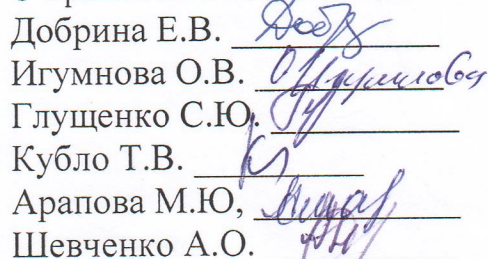 Добрина Е.В.
Игумнова О.В.
Глущенко С.Ю.
Кубло Т.В.
Арапова М.Ю,
Шевченко А.О.